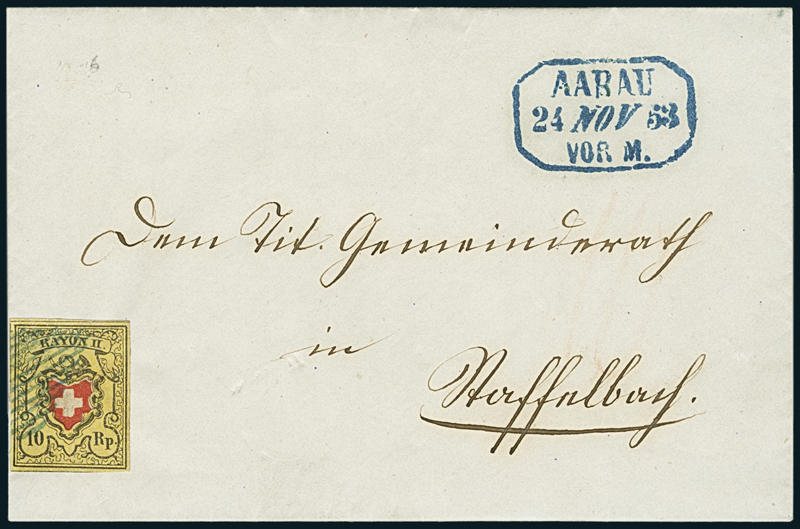 AARAU
24 NOV 53
VOR M.
Dem Tit. Gemeinderath
in
Staffelbach.
RAYON II.
10 Rp.